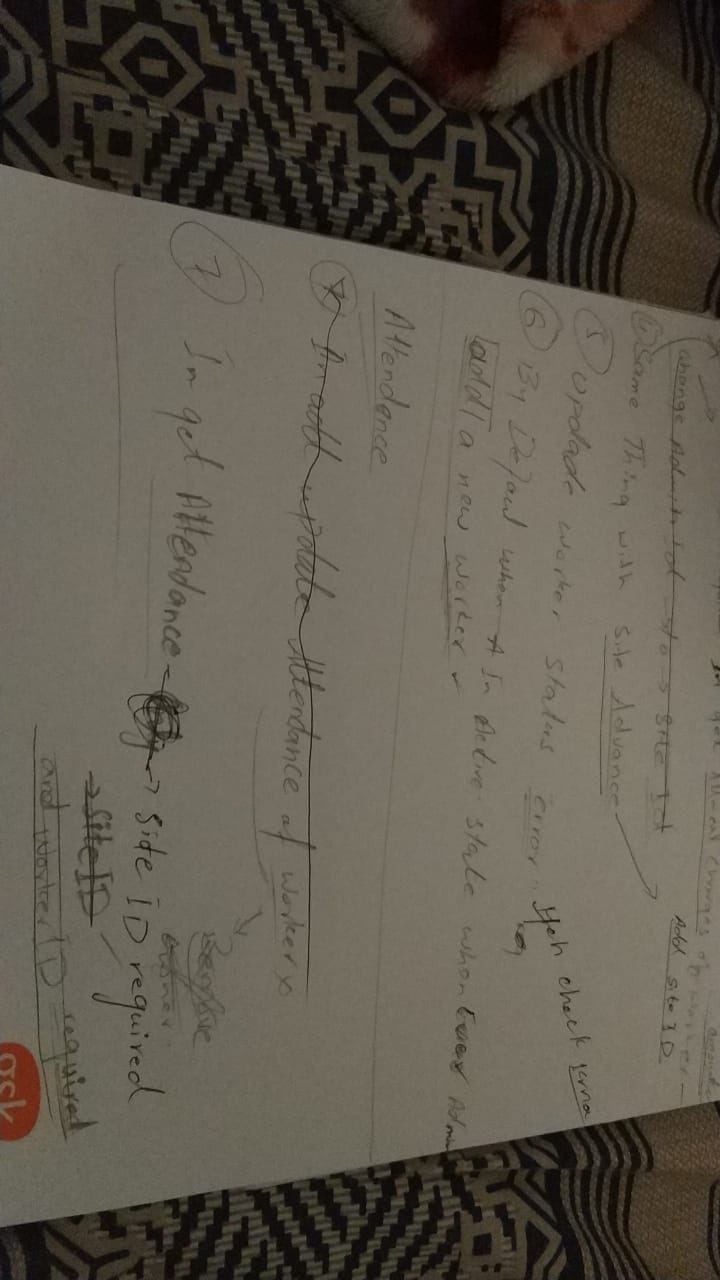 In get Annual Charges of worker amount
Change Admin Id to → Site Id
Add Site ID
④ Same Thing with Site Advance
⑤ Updade worker status error. Yeh check karna
⑥ By Defaul when A In Active state when Admin
add a new worker ✓
Attendence
In add update Attendance of worker
Remove
owner
⑦ In get Attendance → Side ID required
→ Site ID
and worker ID required
gsk